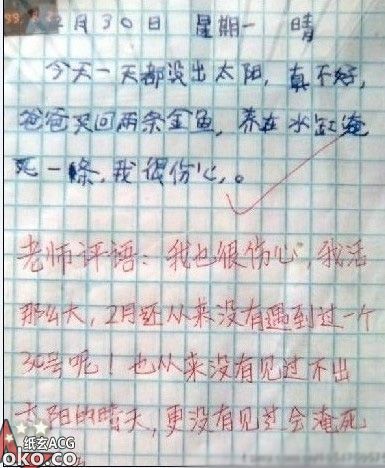 2月30日 星期一 晴
今天一天都没出太阳,真不好,
爸爸买回两条金鱼,养在水缸淹
死一條,我很伤心,。
老师评语:我也很伤心,我活
那么大,2月还从来没有遇到过一个
30号呢!也从来没有见过不出
太阳的晴天,更没有见过会淹死
纸玄ACG
oko.co